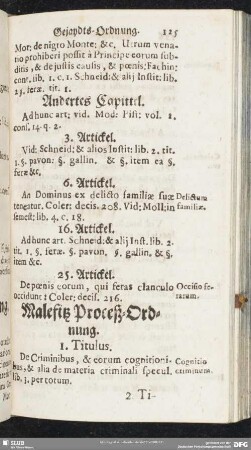 Gejaydts-Ordnung. 125
Mor: de nigro Monte: &c. Utrum vena-
tio prohiberi possit à Principe eorum sub-
ditis, & de justis causis, & pœnis: Fachin:
cont. lib. 1. c. 1. Schneid: & alij Instit: lib.
2. feræ. tit. 1.
Andertes Capittel.
Ad hunc art; vid. Mod: Pist: vol. 1.
cons. 14. q. 2.
3. Artickel.
Vid: Schneid: & alios Instit: lib. 2. tit.
1. §. pavon: §. gallin. & §. item ea §.
feræ &c.
6. Artickel.
An Dominus ex delicto familiæ suæ Delictum
teneatur. Coler: decis. 208. Vid; Moll: in familiæ.
semest; lib. 4. c. 18.
16. Artickel.
Ad hunc art. Schneid: & alij Inst. lib. 2.
tit. 1. §. feræ §. pavon. §. gallin. & §.
item &c.
25. Artickel.
De pœnis eorum, qui feras clanculo Occisio fe-
occidunt: Coler: decis. 216. rarum.
Malefitz Proceß-Ord-
nung.
1. Titulus.
De Criminibus, & eorum cognitioni- Cognitio
bus, & alia de materia criminali specul. criminum.
lib. 3. per totum.
2 Ti-
SLUB